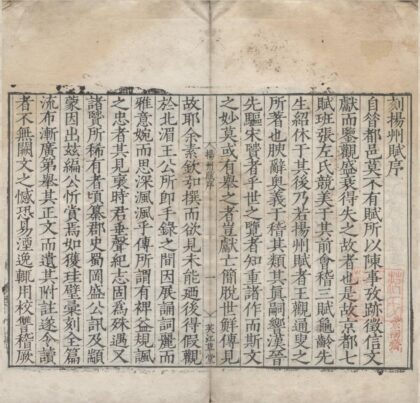 刻揚州賦序
自昔都邑莫不有賦所以陳事攷跡徵信文
獻而鑒觀盛衰得失之故者也是故京都七
賦班張左氏競美于其前會稽三賦龜齡先
生紹休于其後乃若揚州賦者王觀通叟之
所著也腴辭奧義于稽其類其眞嗣響漢晉
先驅宋賢者乎世之覽者知重諸作而斯文
之妙莫或有舉之者豈獻亡簡脫世鮮傳見
揚州賦序 一
草堂
故耶余素欽撰而欲見未能邇後得假觀
於北湄王公所即手錄之間因展誦詞麗而
雅意婉而思深渢渢乎傳所謂有裨益規諷
之忠者其見褒時君垂聲紀志固爲殊遇又
諸賢所稀有者頃纂郡史蜀岡盛公訊及顓
蒙因出茲編公忻賞焉如獲珪璧彙刻全篇
流布漸廣第舉其正文而遺其附註遂令讀
者不無闕文之憾恐易湮逸輒用校讐稽厥